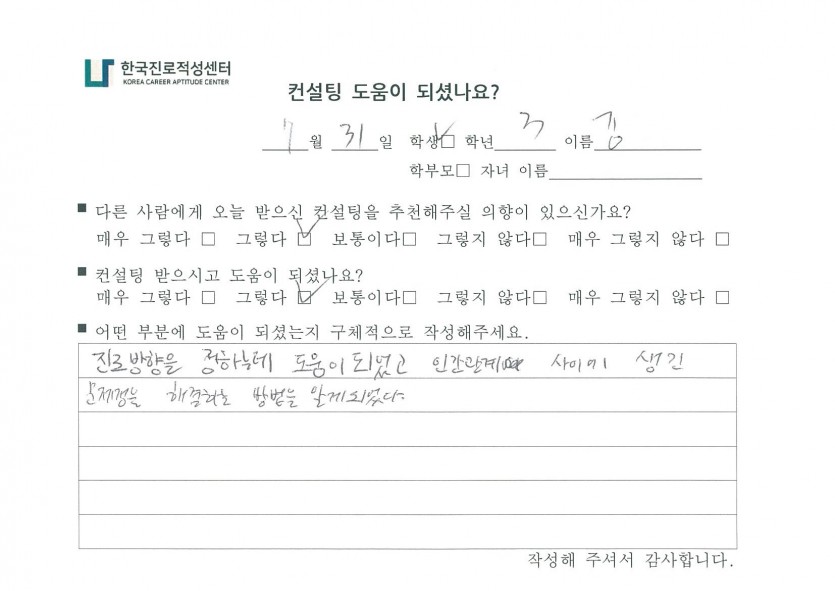 한국진로적성센터
KOREA CAREER APTITUDE CENTER
컨설팅 도움이 되셨나요?
7월 31일 학생☑ 학년 3 이름 김
학부모□ 자녀 이름
■ 다른 사람에게 오늘 받으신 컨설팅을 추천해주실 의향이 있으신가요?
매우 그렇다 □ 그렇다 ☑ 보통이다□ 그렇지 않다□ 매우 그렇지 않다 □
■ 컨설팅 받으시고 도움이 되셨나요?
매우 그렇다 □ 그렇다 ☑ 보통이다□ 그렇지 않다□ 매우 그렇지 않다 □
■ 어떤 부분에 도움이 되셨는지 구체적으로 작성해주세요.
진로방향을 정하는데 도움이 되었고 인간관계 사이에 생긴
문제점을 해결하는 방법을 알게되었다.
작성해 주셔서 감사합니다.